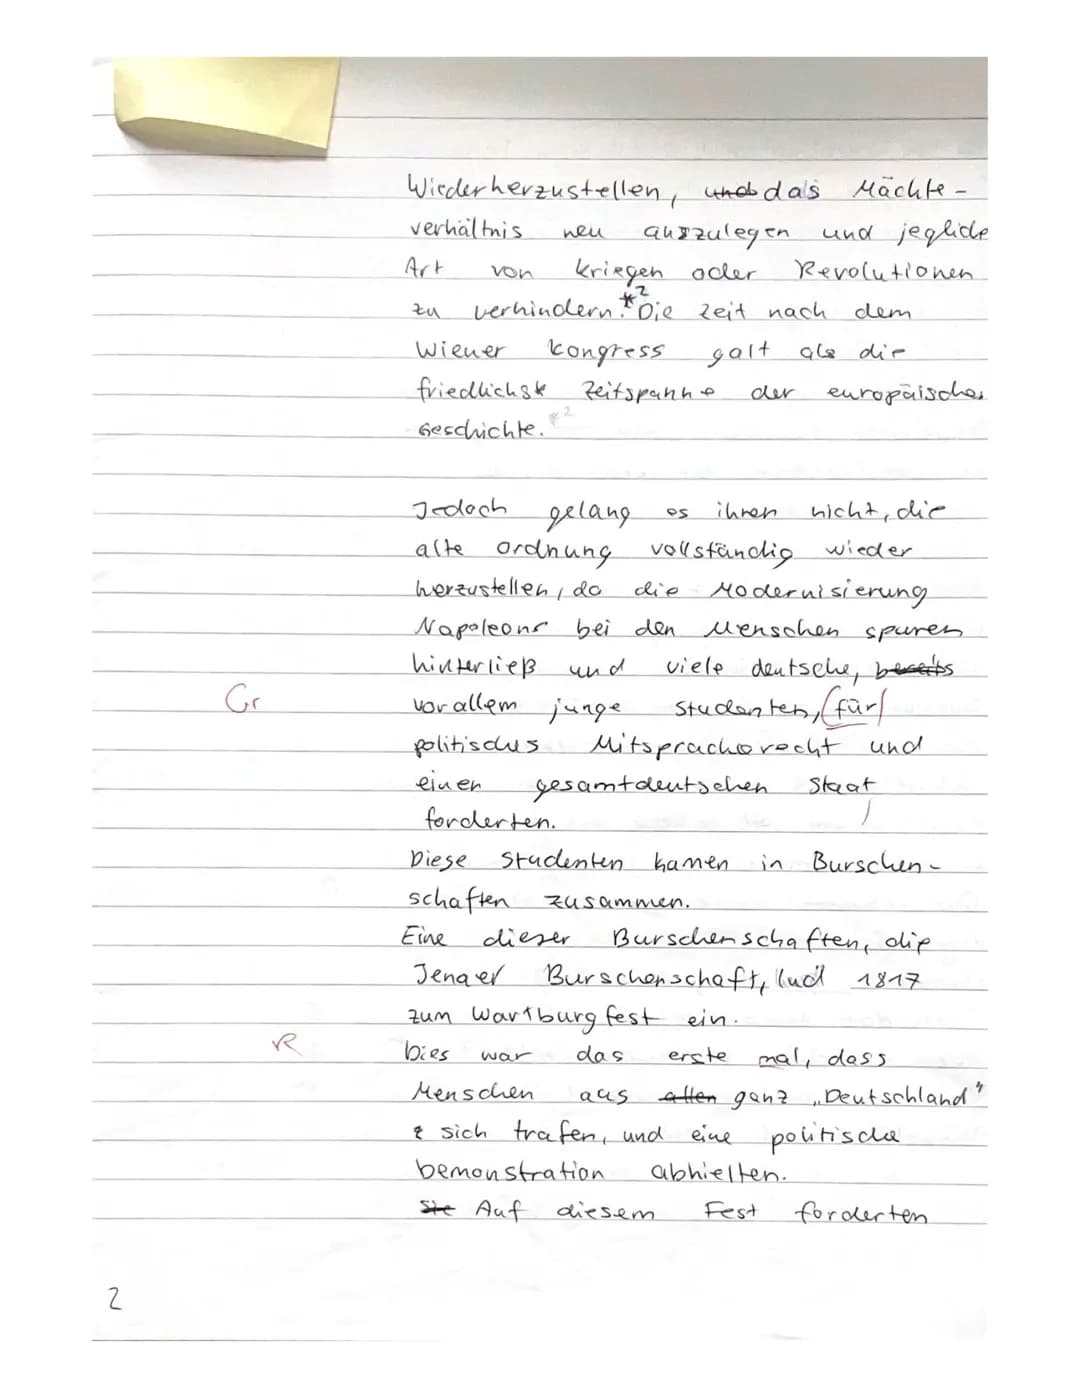 Wiederherzustellen, und das Mächte-
verhältnis neu auszulegen und jegliche
Art von kriegen oder Revolutionen
zu verhindern.*2 Die Zeit nach dem
Wiener kongress galt als die
friedlichste Zeitspanne der europäischen
Geschichte. *2
Jedoch gelang es ihnen nicht, die
alte ordnung vollständig wieder
herzustellen, da die Modernisierung
Napoleons bei den Menschen spuren
hinterließ und viele deutsche, bereits
Gr vor allem junge Studenten, (für)
politisches Mitspracherecht und
einen gesamtdeutschen Staat
forderten.
Diese Studenten kamen in Burschen-
schaften zusammen.
Eine dieser Burschenschaften, die
Jenaer Burschenschaft, lud 1817
zum Wartburgfest ein.
R Dies war das erste mal, dass
Menschen aus allen ganz „Deutschland"
sich trafen, und eine politische
Demonstration abhielten.
Sie Auf diesem Fest forderten
2